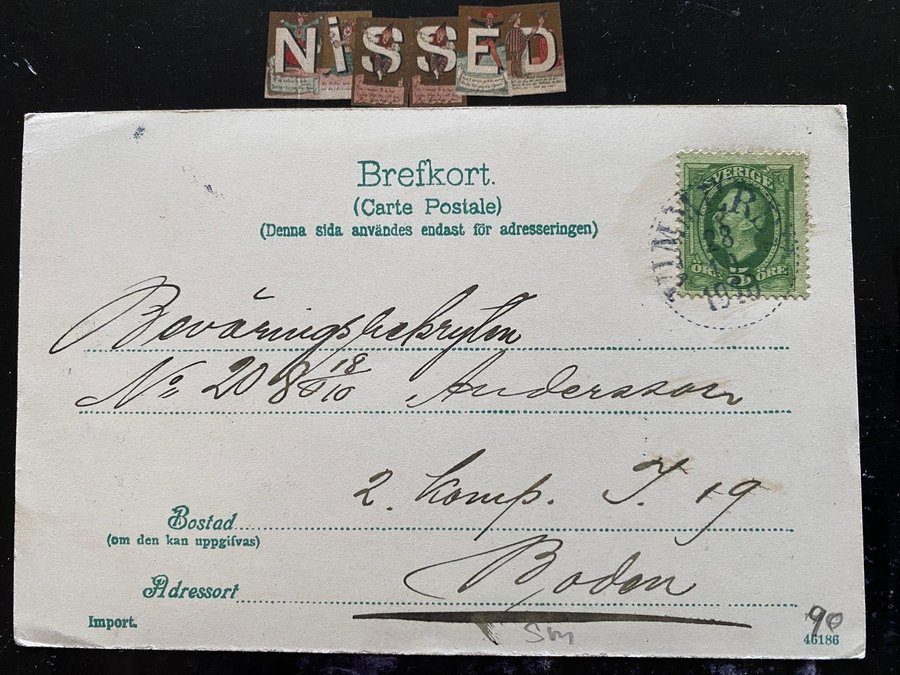 NiSSED
Brefkort.
(Carte Postale)
(Denna sida användes endast för adresseringen)
SVERIGE
ÖRE 5 ÖRE
28
1910
Beväringsrekryten
No 20 8 18/10 Andersson
2. Komp. I 19
Bostad
(om den kan uppgifvas)
Boden
Adressort
Import.
Sm
90
46186